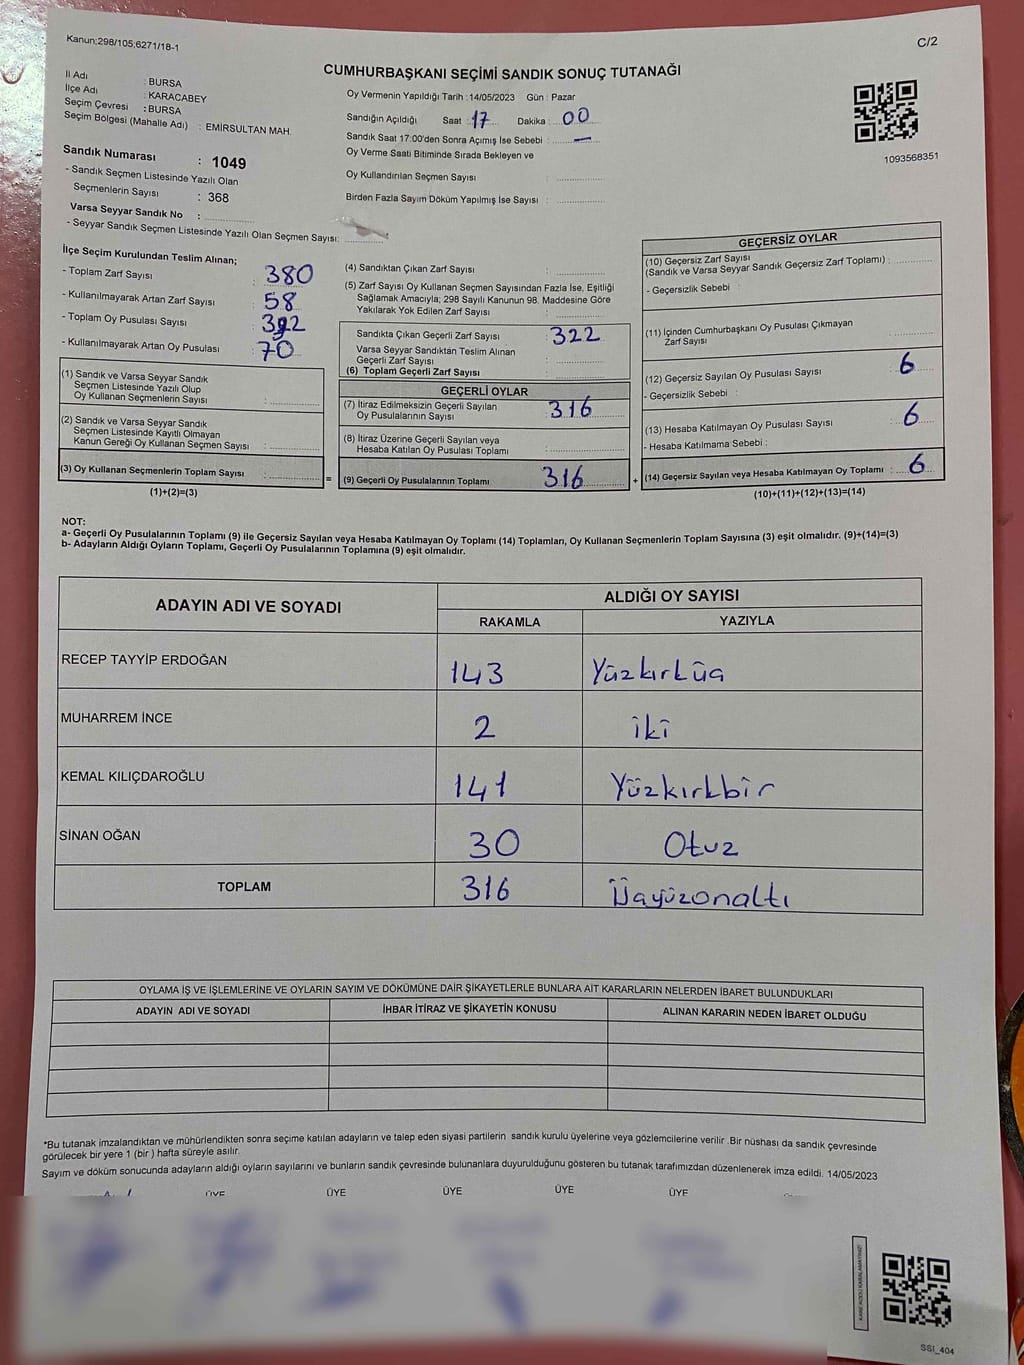 Kanun:298/105;6271/18-1
C/2
CUMHURBAŞKANI SEÇİMİ SANDIK SONUÇ TUTANAĞI
İl Adı : BURSA
İlçe Adı : KARACABEY
Seçim Çevresi : BURSA
Seçim Bölgesi (Mahalle Adı) : EMİRSULTAN MAH.
Sandık Numarası : 1049
- Sandık Seçmen Listesinde Yazılı Olan
Seçmenlerin Sayısı : 368
Varsa Seyyar Sandık No :
- Seyyar Sandık Seçmen Listesinde Yazılı Olan Seçmen Sayısı:
Oy Vermenin Yapıldığı Tarih :14/05/2023 Gün : Pazar
Sandığın Açıldığı Saat : 17 Dakika : 00
Sandık Saat 17:00'den Sonra Açımış İse Sebebi : —
Oy Verme Saati Bitiminde Sırada Bekleyen ve
Oy Kullandırılan Seçmen Sayısı :
Birden Fazla Sayım Döküm Yapılmış İse Sayısı :
1093568351
İlçe Seçim Kurulundan Teslim Alınan;
- Toplam Zarf Sayısı : 380
- Kullanılmayarak Artan Zarf Sayısı : 58
- Toplam Oy Pusulası Sayısı : 392
- Kullanılmayarak Artan Oy Pusulası : 70
(1) Sandık ve Varsa Seyyar Sandık
Seçmen Listesinde Yazılı Olup
Oy Kullanan Seçmenlerin Sayısı :
(2) Sandık ve Varsa Seyyar Sandık
Seçmen Listesinde Kayıtlı Olmayan
Kanun Gereği Oy Kullanan Seçmen Sayısı :
(3) Oy Kullanan Seçmenlerin Toplam Sayısı :
(1)+(2)=(3)
=
(4) Sandıktan Çıkan Zarf Sayısı :
(5) Zarf Sayısı Oy Kullanan Seçmen Sayısından Fazla İse, Eşitliği
Sağlamak Amacıyla; 298 Sayılı Kanunun 98. Maddesine Göre
Yakılarak Yok Edilen Zarf Sayısı :
Sandıkta Çıkan Geçerli Zarf Sayısı : 322
Varsa Seyyar Sandıktan Teslim Alınan
Geçerli Zarf Sayısı :
(6) Toplam Geçerli Zarf Sayısı :
GEÇERLİ OYLAR
(7) İtiraz Edilmeksizin Geçerli Sayılan
Oy Pusulalarının Sayısı : 316
(8) İtiraz Üzerine Geçerli Sayılan veya
Hesaba Katılan Oy Pusulası Toplamı :
(9) Geçerli Oy Pusulalarının Toplamı : 316
+
GEÇERSİZ OYLAR
(10) Geçersiz Zarf Sayısı
(Sandık ve Varsa Seyyar Sandık Geçersiz Zarf Toplamı) :
- Geçersizlik Sebebi :
(11) İçinden Cumhurbaşkanı Oy Pusulası Çıkmayan
Zarf Sayısı :
(12) Geçersiz Sayılan Oy Pusulası Sayısı : 6
- Geçersizlik Sebebi :
(13) Hesaba Katılmayan Oy Pusulası Sayısı : 6
- Hesaba Katılmama Sebebi :
(14) Geçersiz Sayılan veya Hesaba Katılmayan Oy Toplamı : 6
(10)+(11)+(12)+(13)=(14)
NOT:
a- Geçerli Oy Pusulalarının Toplamı (9) ile Geçersiz Sayılan veya Hesaba Katılmayan Oy Toplamı (14) Toplamları, Oy Kullanan Seçmenlerin Toplam Sayısına (3) eşit olmalıdır. (9)+(14)=(3)
b- Adayların Aldığı Oyların Toplamı, Geçerli Oy Pusulalarının Toplamına (9) eşit olmalıdır.
ADAYIN ADI VE SOYADI
ALDIĞI OY SAYISI
RAKAMLA YAZIYLA
RECEP TAYYİP ERDOĞAN 143 Yüzkırküç
MUHARREM İNCE 2 iki
KEMAL KILIÇDAROĞLU 141 Yüzkırkbir
SİNAN OĞAN 30 Otuz
TOPLAM 316 Üçyüzonaltı
OYLAMA İŞ VE İŞLEMLERİNE VE OYLARIN SAYIM VE DÖKÜMÜNE DAİR ŞİKAYETLERLE BUNLARA AİT KARARLARIN NELERDEN İBARET BULUNDUKLARI
ADAYIN ADI VE SOYADI İHBAR İTİRAZ VE ŞİKAYETİN KONUSU ALINAN KARARIN NEDEN İBARET OLDUĞU
*Bu tutanak imzalandıktan ve mühürlendikten sonra seçime katılan adayların ve talep eden siyasi partilerin sandık kurulu üyelerine veya gözlemcilerine verilir .Bir nüshası da sandık çevresinde
görülecek bir yere 1 (bir ) hafta süreyle asılır.
Sayım ve döküm sonucunda adayların aldığı oyların sayılarını ve bunların sandık çevresinde bulunanlara duyurulduğunu gösteren bu tutanak tarafımızdan düzenlenerek imza edildi. 14/05/2023
ÜYE ÜYE ÜYE ÜYE ÜYE
KARE KODU KARALAMAYINIZ!
SSİ_404